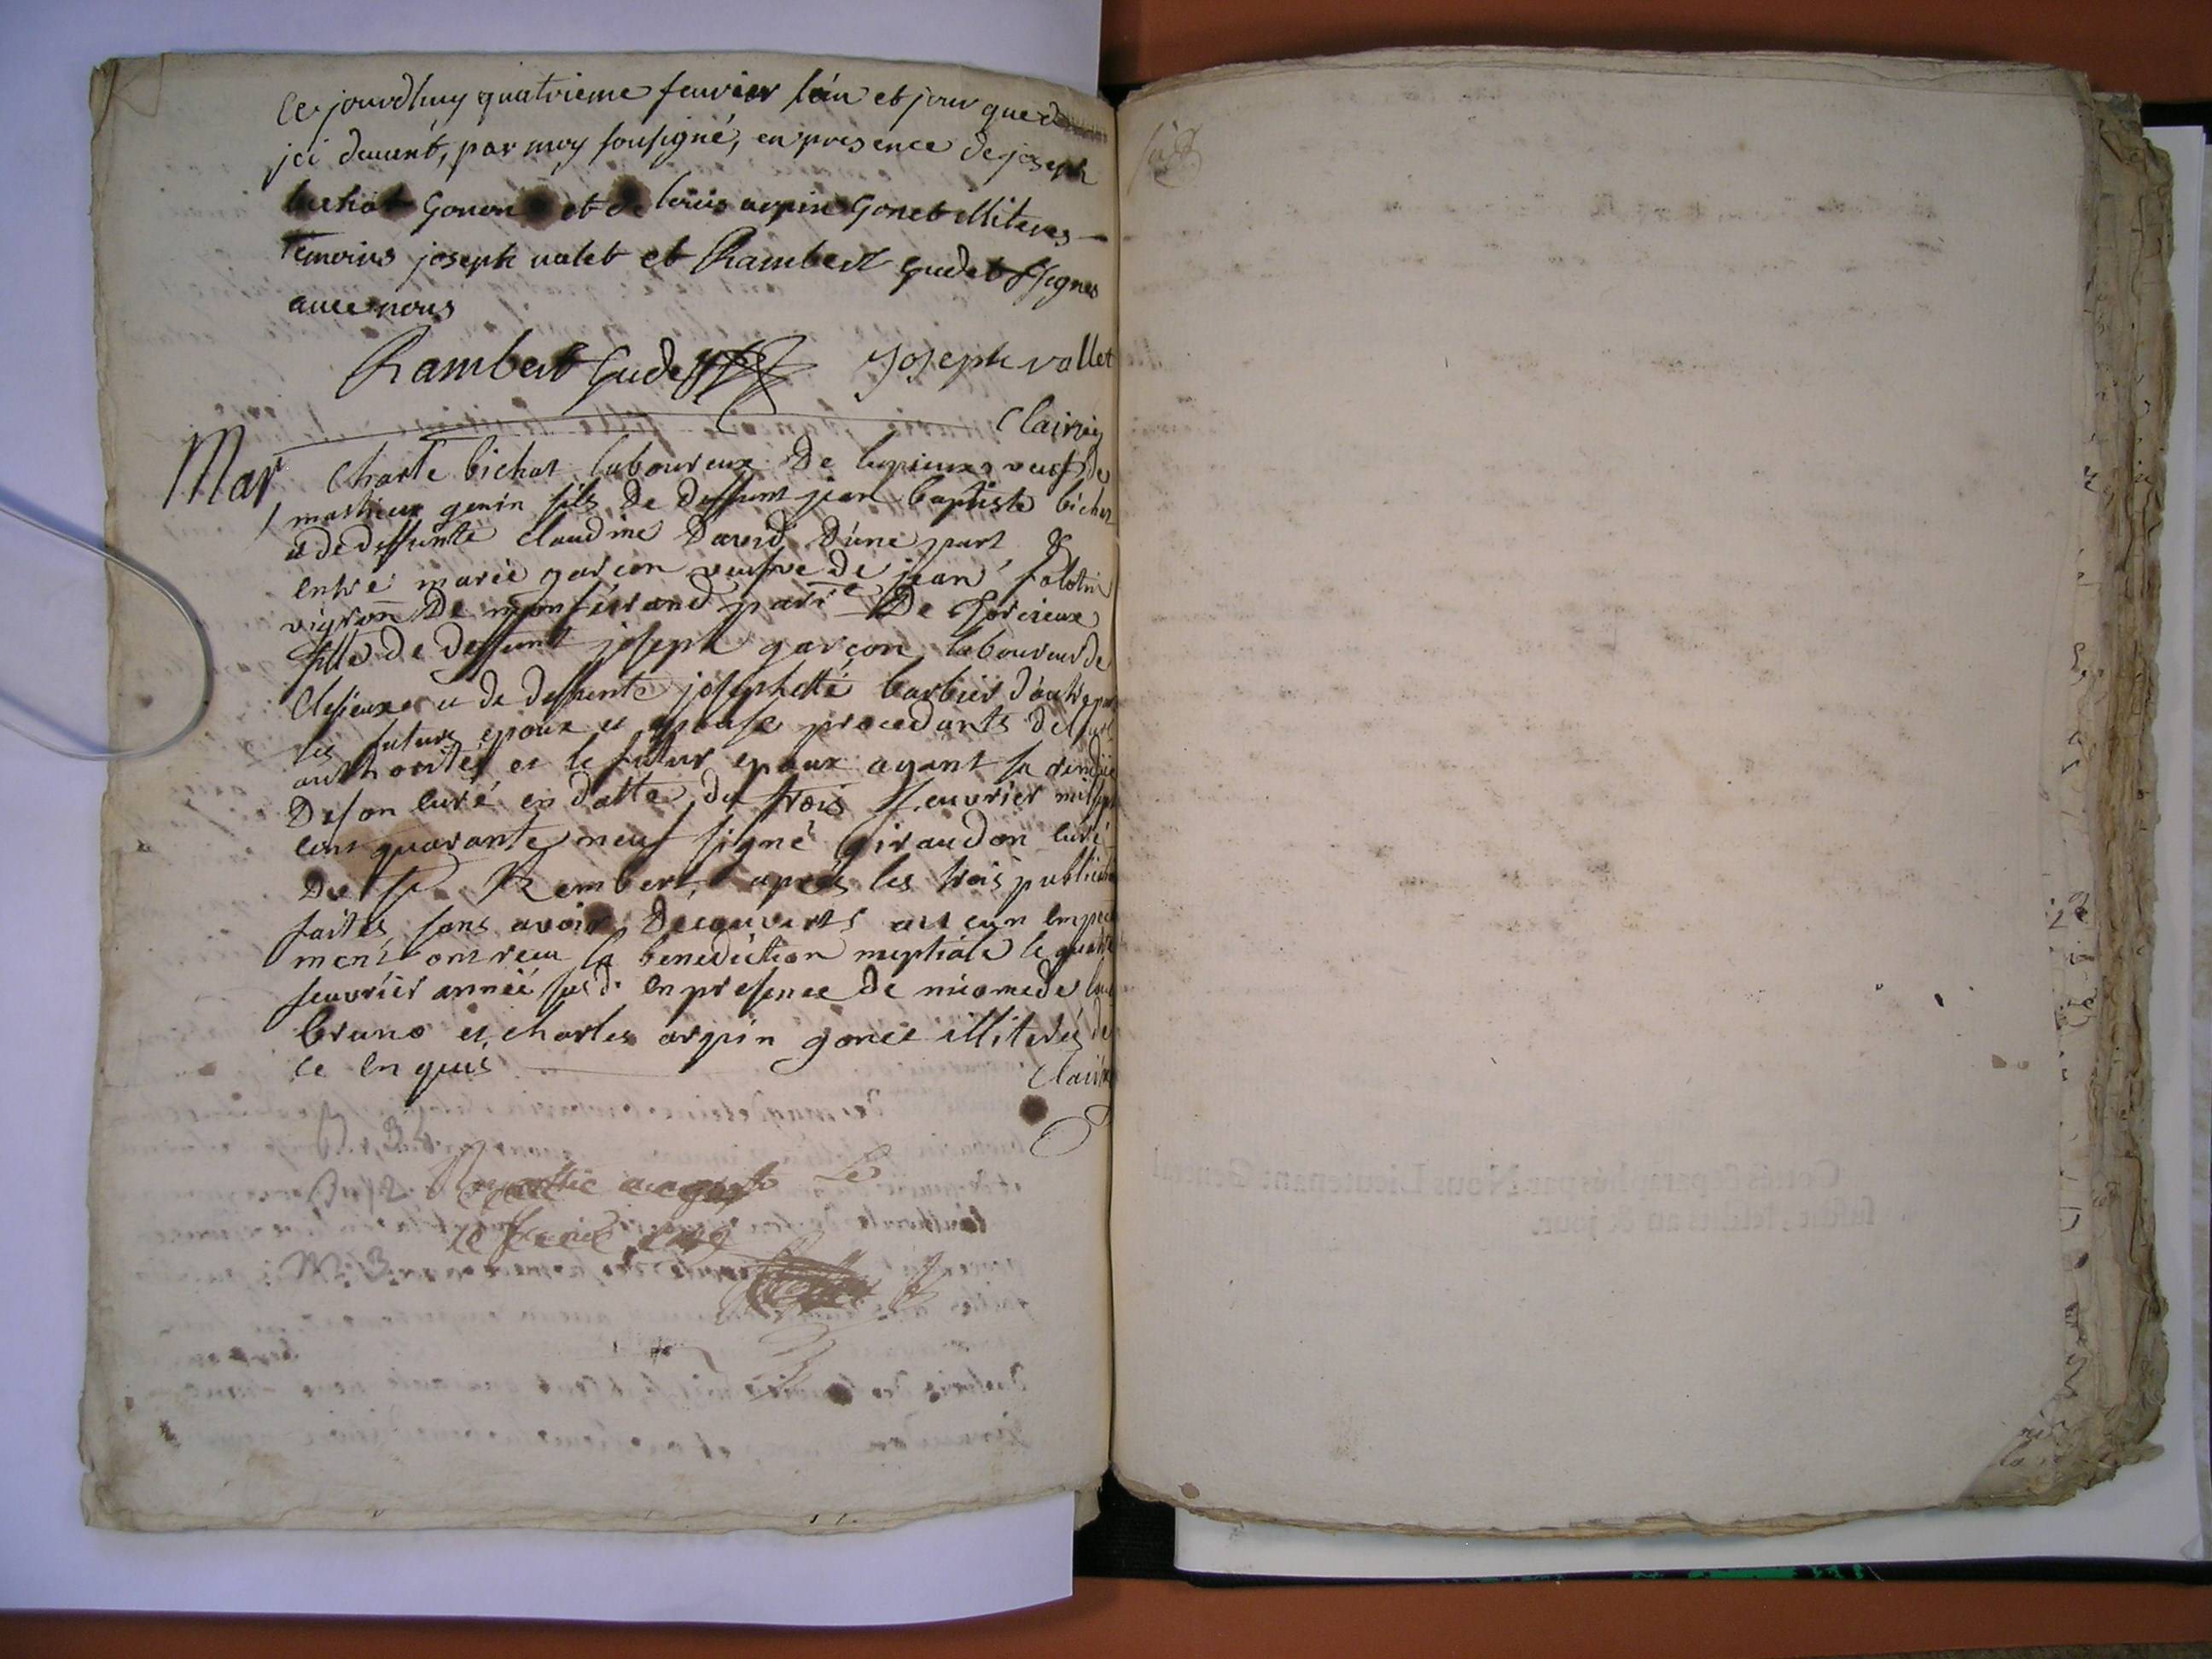 ce jourdhuy quatrieme feuvrier l'an et jour que
jci devent, par moy sousigné, en presence de joseph
Gonon et de louis arpin Gonet illiteres
temoins joseph valet et Rambert Gudet signes
avec nous
Rambert Gudet Joseph vallet
Clairey
Mar Charle bichat laboureux De lupieux veuf de
mathieux genin fils De deffunt jean baptiste bichat
et de deffunte Claudine David D'une part &
entre marie garçon veufve de jean falotin
vigron De montferand parr.e De Torcieux
fille de deffunt joseph garçon laboureur de
Clesieux et de deffunte josephette barbier d'autre part
les futurs epoux et epouse procedants de leurs
authorités et le futur epoux ayant sa remise
De son curé en datte du trois feuvrier mil sept
cent quarante neuf signé Giraudon curé
De st Rembert, apres les trois publications
faites sans avoir Decouverts aucun empeche
ment ont recu la benediction nuptiale le quatre
feuvrier année susd. en presence de nicomede
bruno et charles arpin gonet illiterés de
ce enquis Clairey